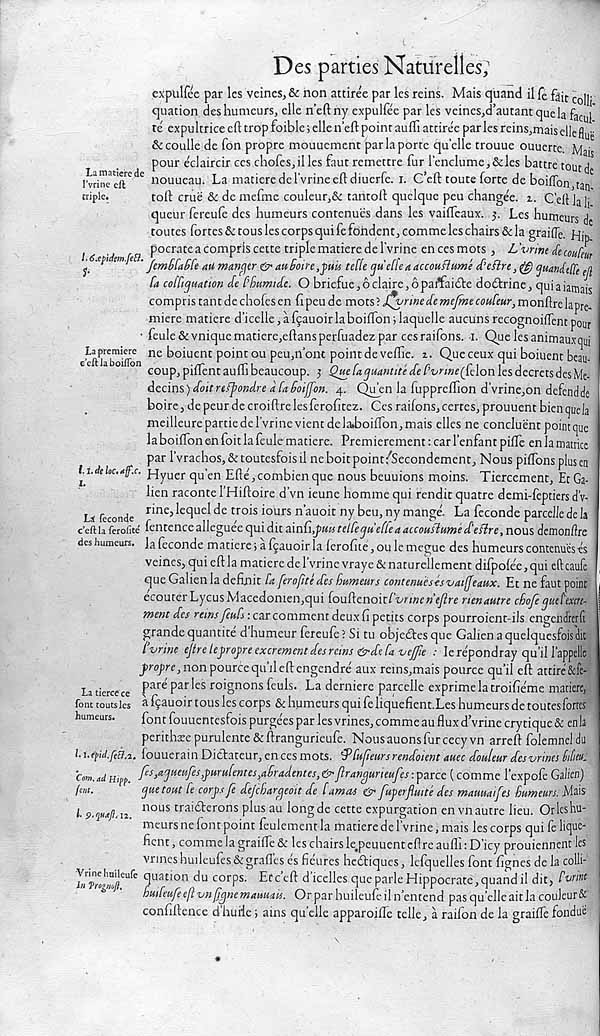 Des parties Naturelles,
expulſée par les veines, & non attirée par les reins. Mais quand il ſe fait colli-
quation des humeurs, elle n'eſt ny expulſée par les veines, d'autant que la facul-
té expultrice eſt trop foible; elle n'eſt point auſſi attirée par les reins, mais elle fluë
& coulle de ſon propre mouuement par la porte qu'elle trouue ouuerte. Mais
pour éclaircir ces choſes, il les faut remettre ſur l'enclume, & les battre tout de
La matiere de
l'vrine eſt
triple.
nouueau. La matiere de l'vrine eſt diuerſe. 1. C'eſt toute ſorte de boiſſon, tan-
toſt cruë & de meſme couleur, & tantoſt quelque peu changée. 2. C'eſt la li-
queur ſereuſe des humeurs contenuës dans les vaiſſeaux. 3. Les humeurs de
toutes ſortes & tous les corps qui ſe fondent, comme les chairs & la graiſſe. Hip-
l. 6. epidem. ſect.
5.
pocrate a compris cette triple matiere de l'vrine en ces mots, L'vrine de couleur
ſemblable au manger & au boire, puis telle qu'elle a accouſtumé d'eſtre, & quand elle eſt
la colliquation de l'humide. O briefue, ô claire, ô parfaicte doctrine, qui a iamais
compris tant de choſes en ſi peu de mots? L'vrine de meſme couleur, monſtre la pre-
miere matiere d'icelle, à ſçauoir la boiſſon; laquelle aucuns recognoiſſent pour
ſeule & vnique matiere, eſtans perſuadez par ces raiſons. 1. Que les animaux qui
La premiere
c'eſt la boiſſon
ne boiuent point ou peu, n'ont point de veſſie. 2. Que ceux qui boiuent beau-
coup, piſſent auſſi beaucoup. 3 Que la quantité de l'vrine (ſelon les decrets des Me-
decins) doit reſpondre à la boiſſon. 4. Qu'en la ſuppreſſion d'vrine, on defend de
boire, de peur de croiſtre les ſeroſitez. Ces raiſons, certes, prouuent bien que la
meilleure partie de l'vrine vient de la boiſſon, mais elles ne concluënt point que
la boiſſon en ſoit la ſeule matiere. Premierement: car l'enfant piſſe en la matrice
par l'vrachos, & toutesfois il ne boit point. Secondement, Nous piſſons plus en
l. 1. de loc. aff. c.
1.
Hyuer qu'en Eſté, combien que nous beuuions moins. Tiercement, Et Ga-
lien raconte l'Hiſtoire d'vn ieune homme qui rendit quatre demi-ſeptiers d'v-
rine, lequel de trois iours n'auoit ny beu, ny mangé. La ſeconde parcelle de la
La ſeconde
c'eſt la ſeroſité
des humeurs.
ſentence alleguée qui dit ainſi, puis telle qu'elle a accouſtumé d'eſtre, nous demonſtre
la ſeconde matiere; à ſçauoir la ſeroſité, ou le megue des humeurs contenuës és
veines, qui eſt la matiere de l'vrine vraye & naturellement diſpoſée, qui eſt cauſe
que Galien la definit la ſeroſité des humeurs contenuës és vaiſſeaux. Et ne faut point
écouter Lycus Macedonien, qui ſouſtenoit l'vrine n'eſtre rien autre choſe que l'excre-
ment des reins ſeuls: car comment deux ſi petits corps pourroient-ils engendrer ſi
grande quantité d'humeur ſereuſe? Si tu objectes que Galien a quelquesfois dit
l'vrine eſtre le propre excrement des reins & de la veſſie: Ie répondray qu'il l'appelle
propre, non pource qu'il eſt engendré aux reins, mais pource qu'il eſt attiré & ſe-
La tierce ce
ſont touts les
humeurs.
paré par les roignons ſeuls. La derniere parcelle exprime la troiſiéme matiere,
à ſçauoir tous les corps & humeurs qui ſe liquefient. Les humeurs de toutes ſortes
ſont ſouuentesfois purgées par les vrines, comme au flux d'vrine crytique & en la
perithæe purulente & ſtrangurieuſe. Nous auons ſur cecy vn arreſt ſolemnel du
l. 1. epid. ſect. 2.
Com. ad Hipp.
ſent.
ſouuerain Dictateur, en ces mots. Pluſieurs rendoient auec douleur des vrines bilieu-
ſes, aqueuſes, purulentes, abradentes, & ſtrangurieuſes: parce (comme l'expoſe Galien)
que tout le corps ſe deſchargeoit de l'amas & ſuperfluité des mauuaiſes humeurs. Mais
l. 9. quæſt. 12.
nous traicterons plus au long de cette expurgation en vn autre lieu. Or les hu-
meurs ne ſont point ſeulement la matiere de l'vrine; mais les corps qui ſe lique-
fient, comme la graiſſe & les chairs le peuuent eſtre auſſi: D'icy prouiennent les
vrines huileuſes & graſſes és fiéures hectiques, leſquelles ſont ſignes de la colli-
Vrine huileuſe
In Prognoſt.
quation du corps. Et c'eſt d'icelles que parle Hippocrate, quand il dit, l'vrine
huileuſe eſt vn ſigne mauuais. Or par huileuſe il n'entend pas qu'elle ait la couleur &
conſiſtence d'huile; ains qu'elle apparoiſſe telle, à raiſon de la graiſſe fonduë